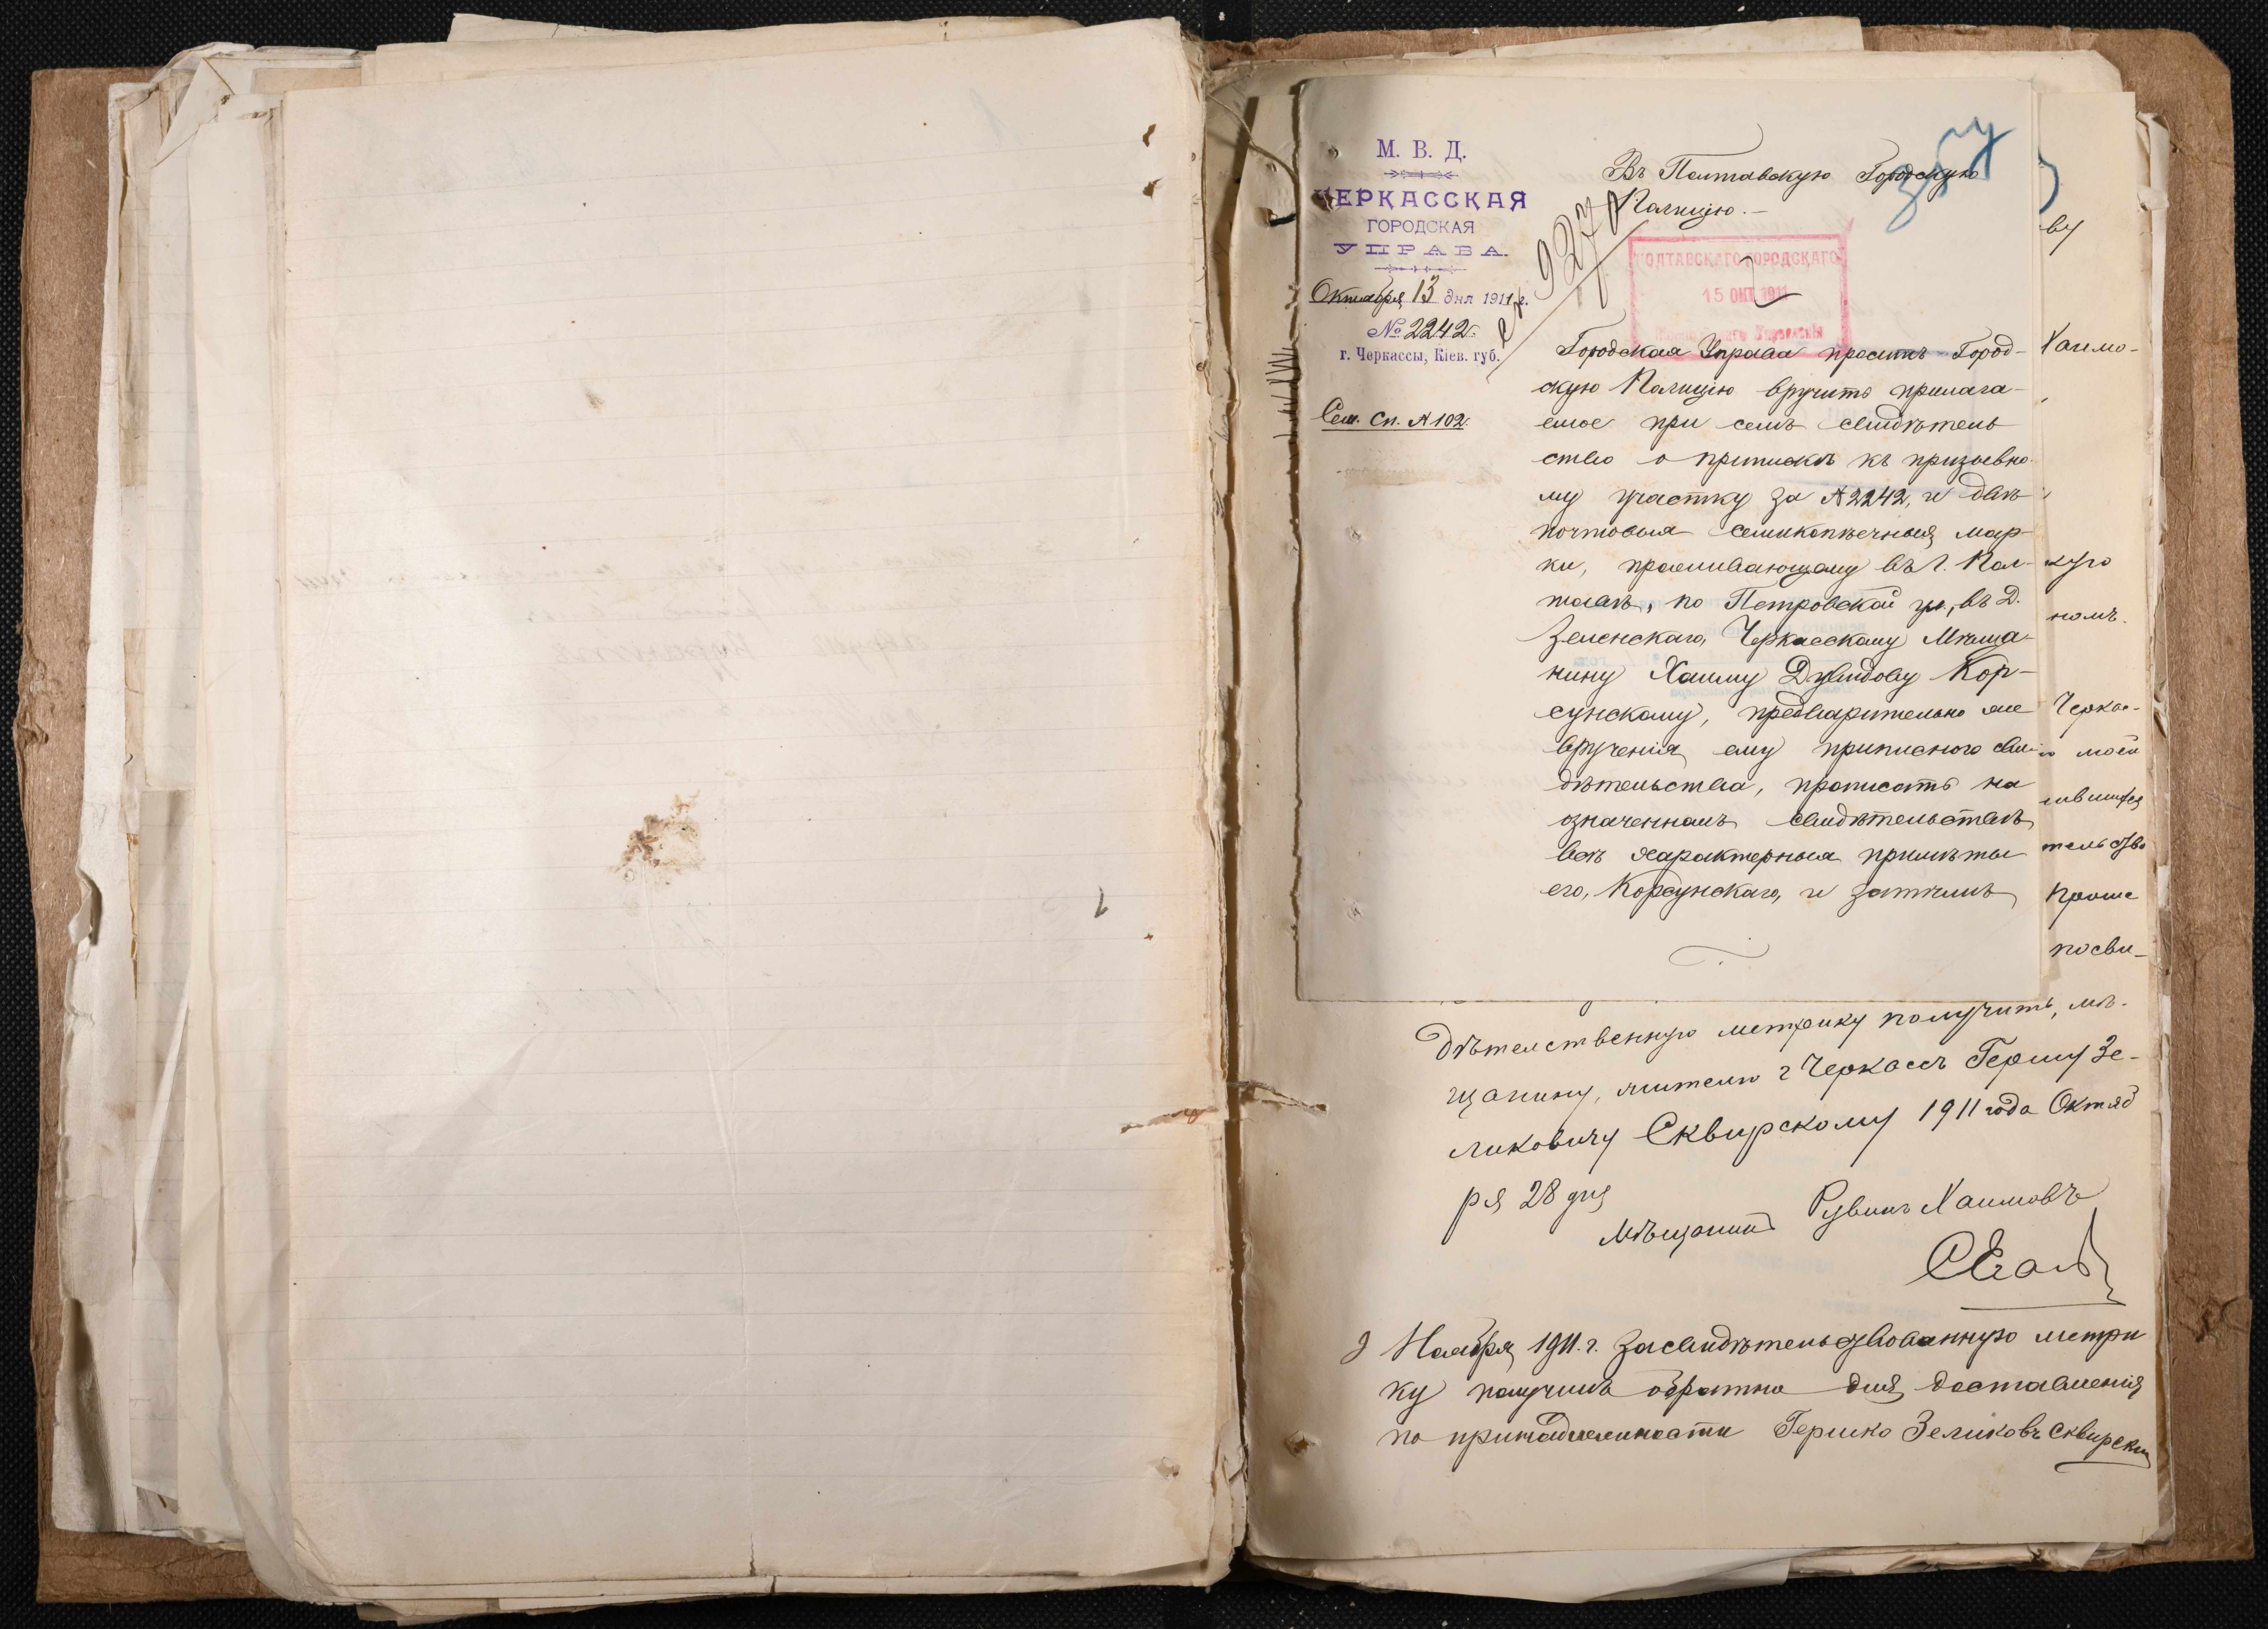 М. В. Д.
ЧЕРКАССКАЯ
ГОРОДСКАЯ
УПРАВА.
Октября 13 дня 1911 г.
№ 2242.
г. Черкассы, Кіев. губ.
Сем. Сп. № 102.
9270
Въ Полтавскую Городскую
Полицію.-
ПОЛТАВСКАГО ГОРОДСКАГО
15 ОКТ 1911
Городская Управа проситъ Город-
скую Полицію вручить прилага-
емое при семъ свидѣтель
ство о припискѣ къ призывно-
му участку за № 2242, и двѣ
почтовыя семикопѣечныя мар-
ки, проживающему въ г. Пол-
тавѣ, по Петровской ул., въ д.
Зеленскаго, Черкасскому Мѣща-
нину Хаиму Дувидову Кор-
сунскому, предварительно же
врученія ему приписного сви-
дѣтельства, прописать на
означенномъ свидѣтельствѣ
всѣ характерныя примѣты
его, Корсунскаго, и затѣмъ
ву
Хаимо-
кую
номъ.
Черкас-
мой
тельство
проше
посви-
дѣтелственную метрику получить, мѣ-
щанину, жителю г Черкассъ Гершу Зе-
ликовичу Сквирскому 1911 года Октяб
ря 28 дня
Мѣщанинъ Рувинъ Хаимовъ
9 Ноября 1911 г. засвидѣтельствованную метри
ку получилъ обратно для доставленія
по принадлежности Гершко Зеликовъ Сквирский
1